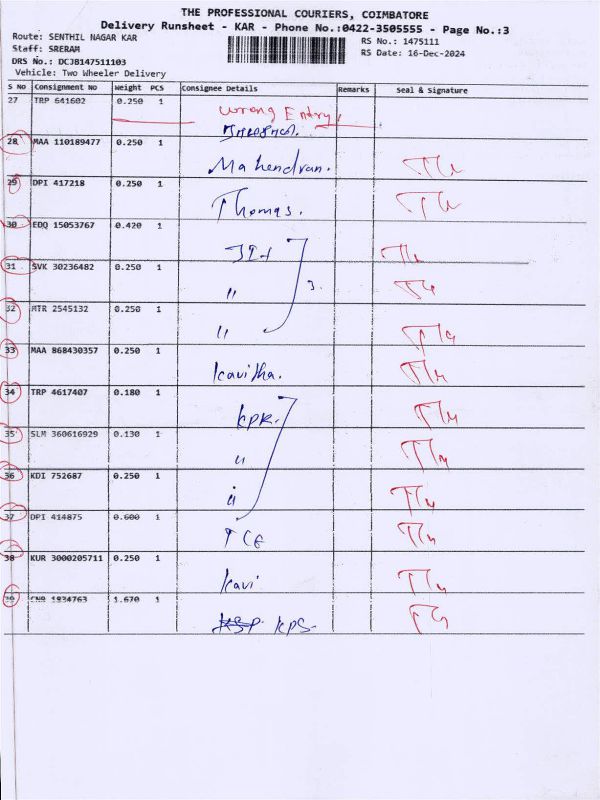 THE PROFESSIONAL COURIERS, COIMBATORE
Delivery Runsheet - KAR - Phone No.:0422-3505555 - Page No.:3
Route: SENTHIL NAGAR KAR
RS No.: 1475111
Staff: SRERAM
RS Date: 16-Dec-2024
DRS No.: DCJB147511103
Vehicle: Two Wheeler Delivery
S No Consignment No Weight PCS Consignee Details Remarks Seal & Signature
27 TRP 641602 0.250 1 Wrong Entry
28 MAA 110189477 0.250 1
Mahendran.
29 DPI 417218 0.250 1
Thomas.
30 EDQ 15053767 0.420 1
31 SVK 30236482 0.250 1
" 3.
32 MTR 2545132 0.250 1
"
33 MAA 868430357 0.250 1
Kavitha.
34 TRP 4617407 0.180 1
KPR.
35 SLM 360616929 0.130 1
"
36 KDI 752687 0.250 1
"
37 DPI 414875 0.600 1
38 KUR 3000205711 0.250 1
Kavi
39 CNB 1934763 1.670 1
KPS.